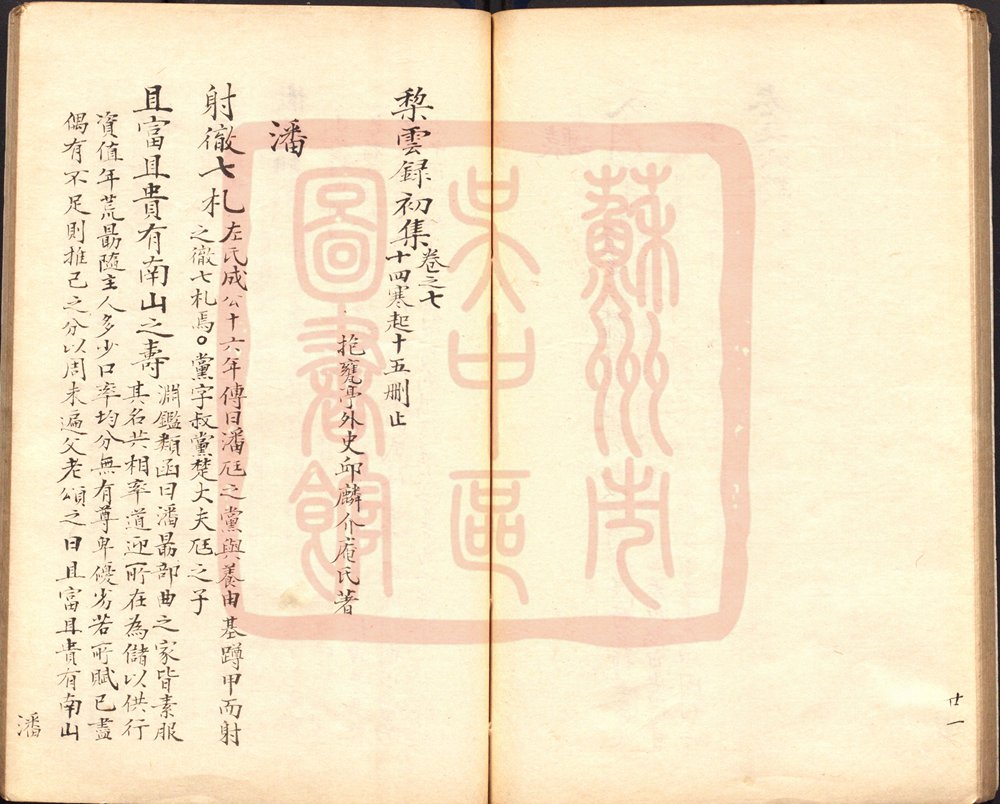 棃雲録初集卷之七
十四寒起十五刪止
抱甕亭外史邱麟介庵氏著
潘
射徹七札左氏成公十六年傳曰潘尫之黨與養由基蹲甲而射
之徹七札焉。黨字叔黨楚大夫尫之子
且富且貴有南山之壽淵鑑類函曰潘勗部曲之家皆素服
其名共相率道迎所在為儲以供行
資值年荒勗隨主人多少口率均分無有尊卑優劣若所賦已盡
偶有不足則推己之分以周未遍父老頌之曰且富且貴有南山
潘
廿一
蘇州市
吳中區
圖書館